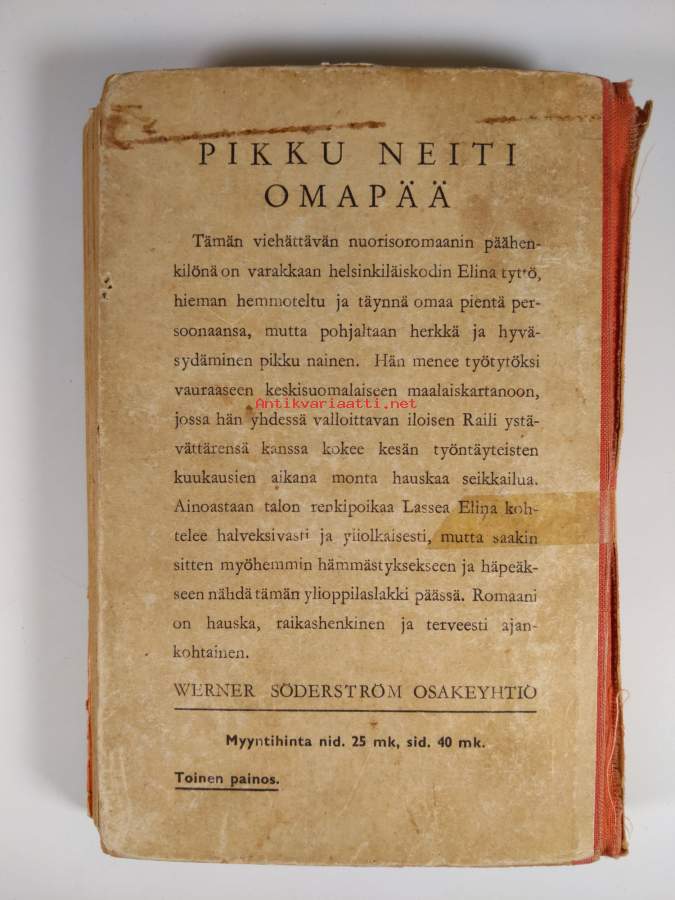 PIKKU NEITI
OMAPÄÄ
Tämän viehättävän nuorisoromaanin päähen-
kilönä on varakkaan helsinkiläiskodin Elina tyttö,
hieman hemmoteltu ja täynnä omaa pientä per-
soonaansa, mutta pohjaltaan herkkä ja hyvä-
sydäminen pikku nainen. Hän menee työtytöksi
vauraaseen keskisuomalaiseen maalaiskartanoon,
Antikvariaatti.net
jossa hän yhdessä valloittavan iloisen Raili ystä-
vättärensä kanssa kokee kesän työntäyteisten
kuukausien aikana monta hauskaa seikkailua.
Ainoastaan talon renkipoikaa Lassea Elina koh-
telee halveksivasti ja yliolkaisesti, mutta saakin
sitten myöhemmin hämmästyksekseen ja häpeäk-
seen nähdä tämän ylioppilaslakki päässä. Romaani
on hauska, raikashenkinen ja terveesti ajan-
kohtainen.
WERNER SÖDERSTRÖM OSAKEYHTIÖ
Myyntihinta nid. 25 mk, sid. 40 mk.
Toinen painos.